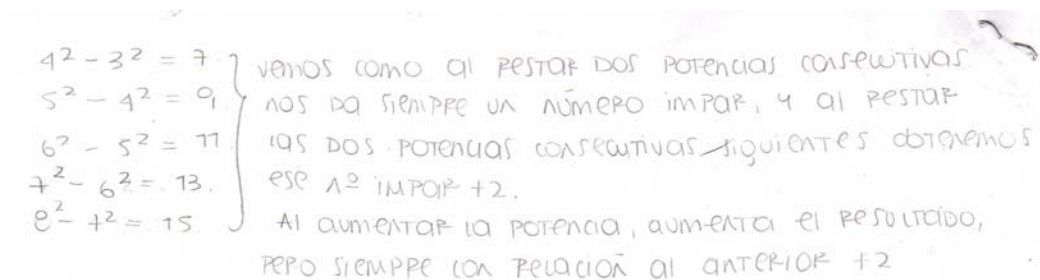 4² - 3² = 7
5² - 4² = 9
6² - 5² = 11
7² - 6² = 13.
8² - 7² = 15
vemos como al restar dos potencias consecutivas
nos da siempre un número impar, y al restar
las dos potencias consecutivas siguientes obtenemos
ese nº impar +2.
Al aumentar la potencia, aumenta el resultado,
pero siempre con relación al anterior +2